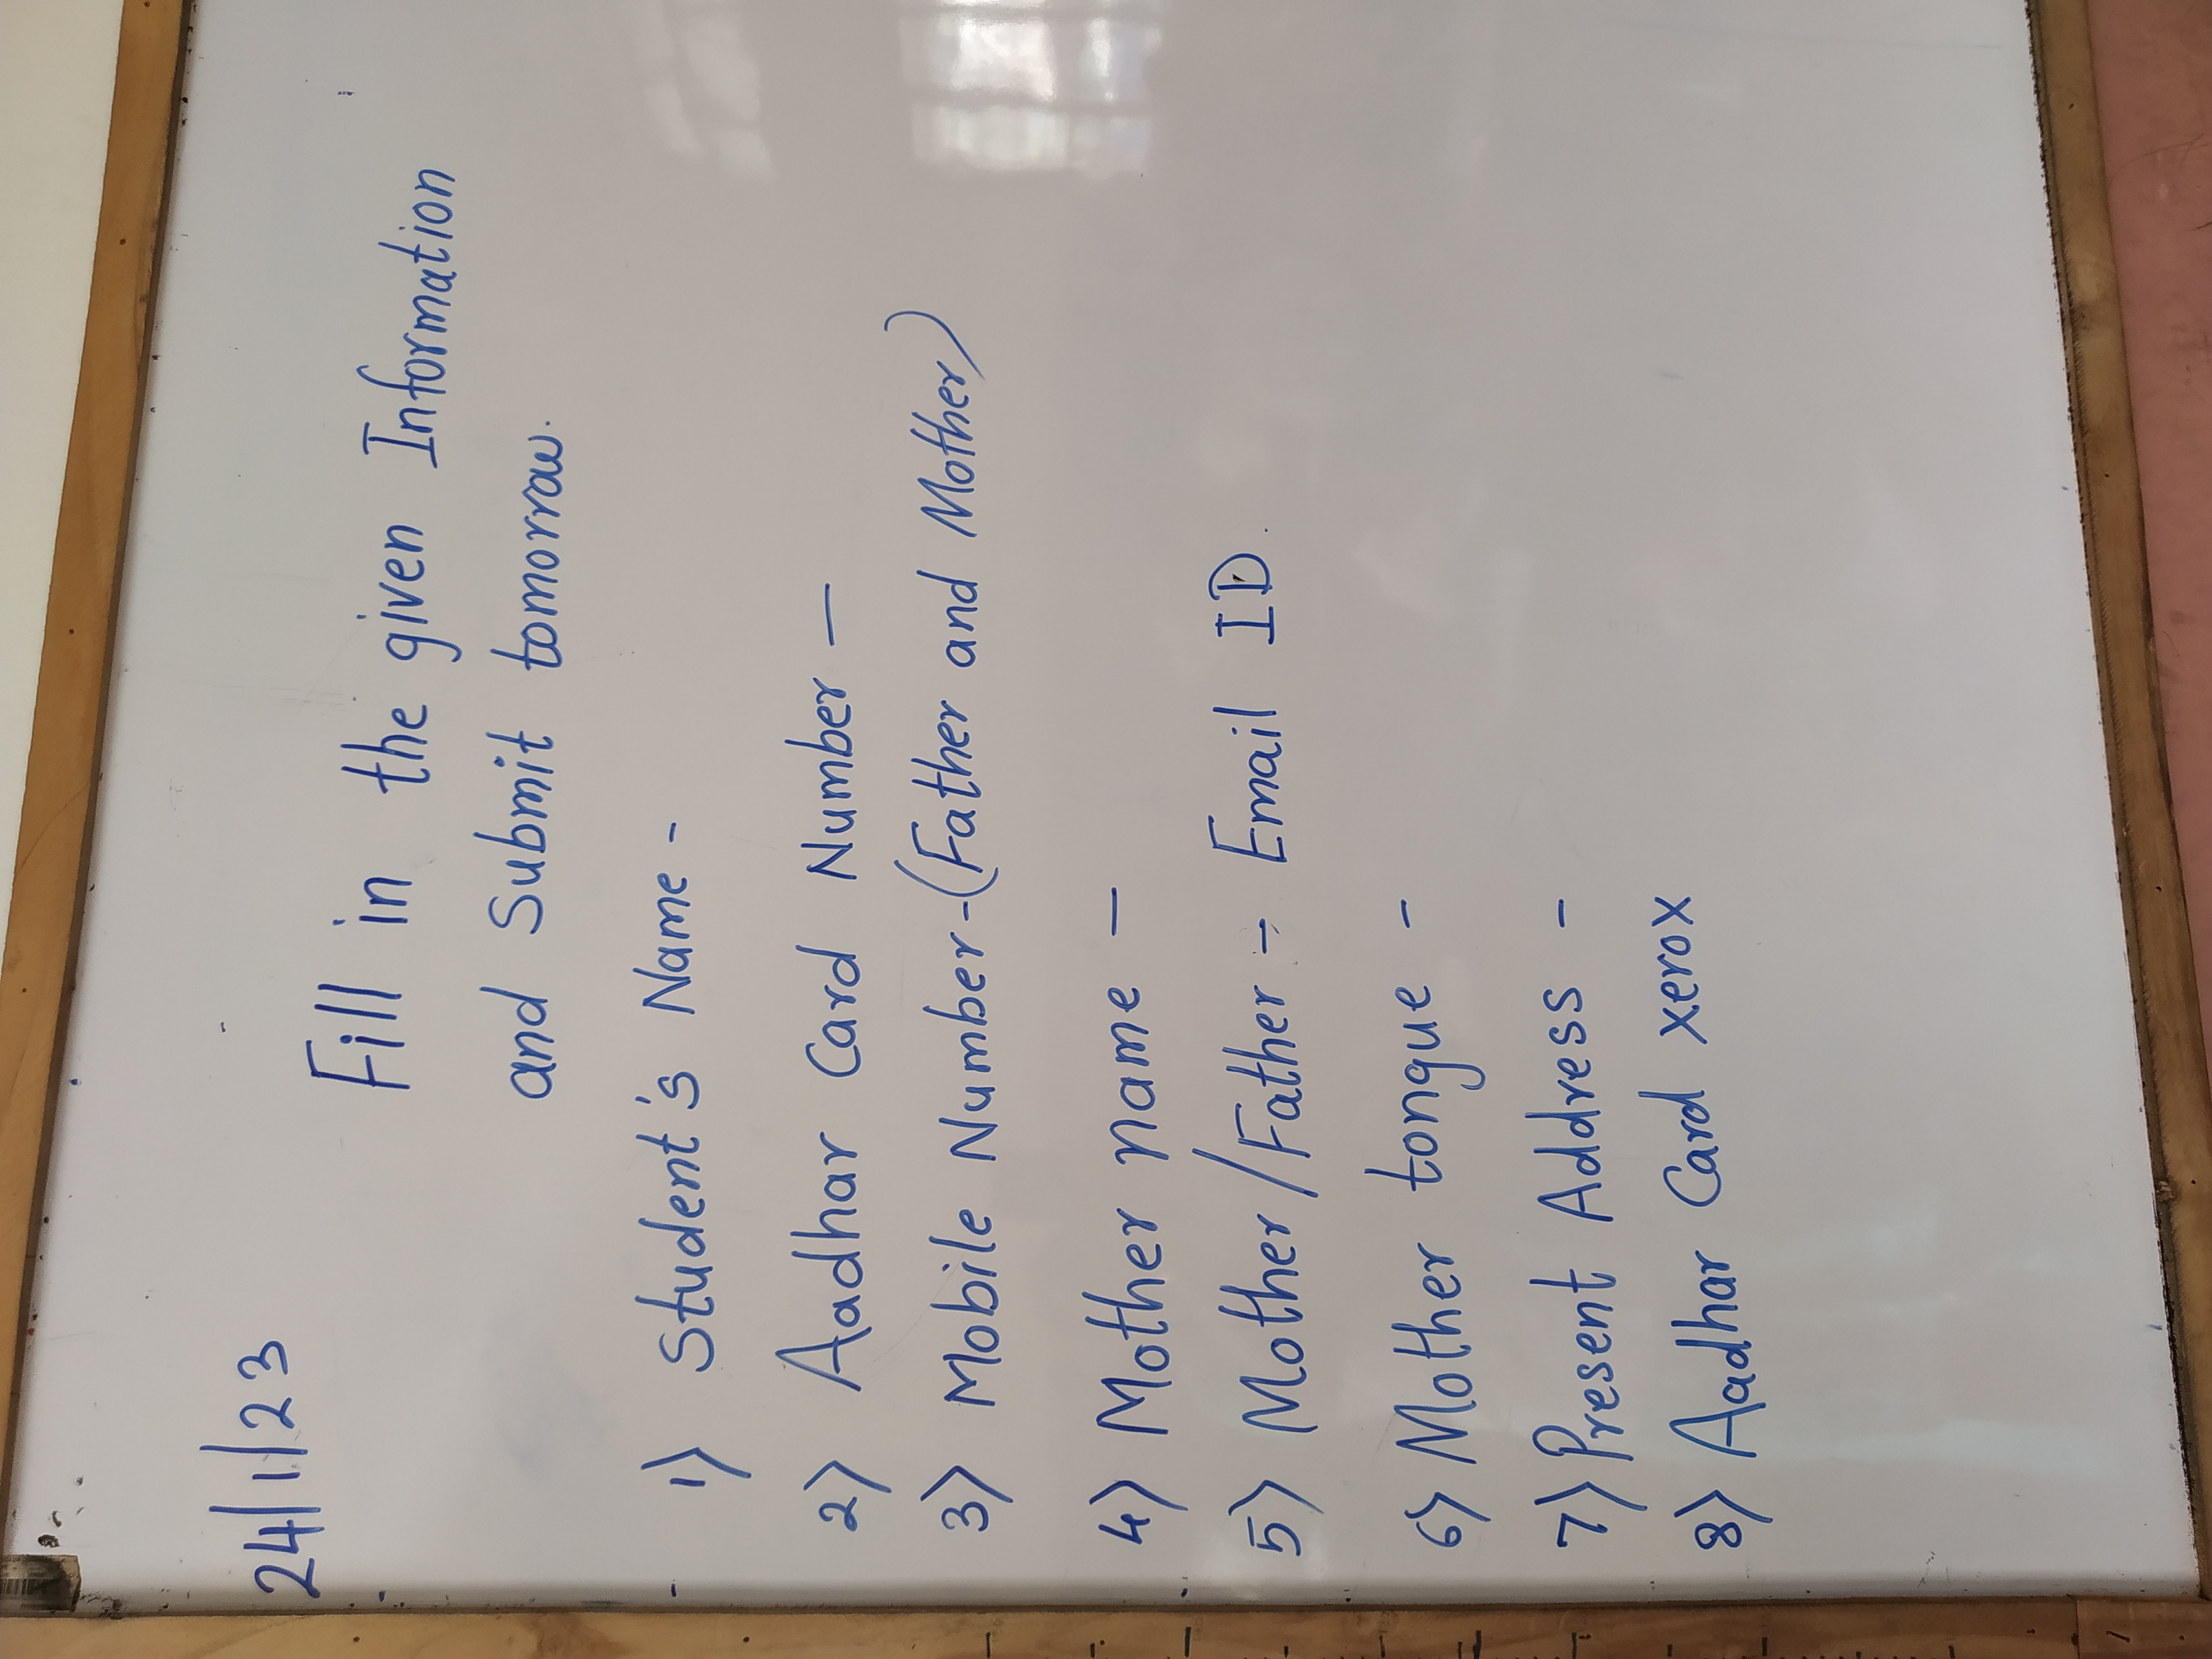 24/1/23
Fill in the given Information
and Submit tomorrow.
1) Student's Name -
2) Aadhar Card Number -
3) Mobile Number - (Father and Mother)
4) Mother name -
5) Mother/Father ÷ Email ID.
6) Mother tongue -
7) Present Address -
8) Aadhar Card xerox